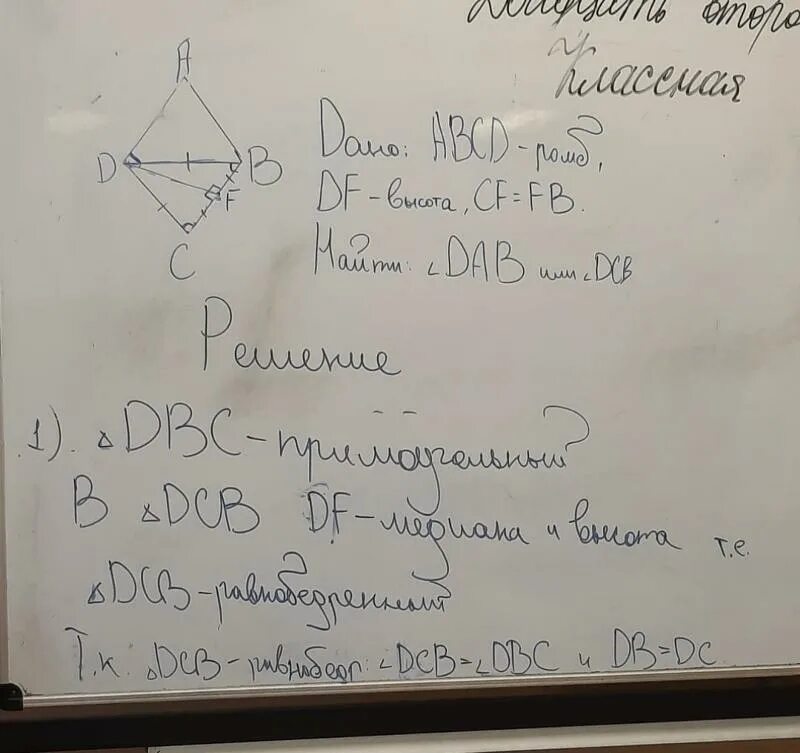 второ
Классная
A
D
B
F
C
Дано: ABCD - ромб,
DF - высота, CF = FB.
Найти: ∠DAB или ∠DCB
Решение
1). △DBC - прямоугольный
В △DCB DF - медиана и высота т.е.
△DCB - равнобедренный
Т.к. △DCB - равнобедр: ∠DCB = ∠DBC и DB = DC